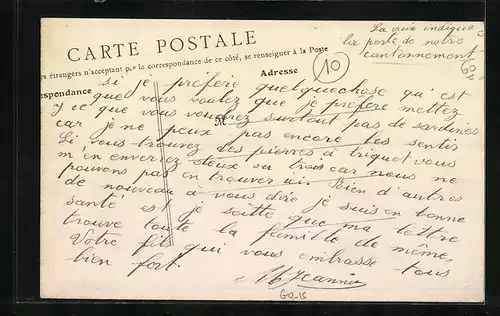 La croix indique
la porte de notre
cantonnement
CARTE POSTALE
étrangers n'acceptant pas la correspondance de ce côté, se renseigner à la Poste
10
Adresse
respondance
si je préfère quelquechose qu'est
que vous voulez que je préfère mettez
y ce que vous voudrez surtout pas de sardines
M
car je ne peux pas encore les sentir
Si vous trouvez des pierres a briquet vous
m en enverrez deux ou trois car nous ne
pouvons pas en trouver ici. Rien d'autres
de nouveau a vous dire je suis en bonne
santé et je soitte que ma lettre
trouve toute la femille de même.
Votre fils qui vous embrasse tous
bien fort.
Jeannin
GO-15